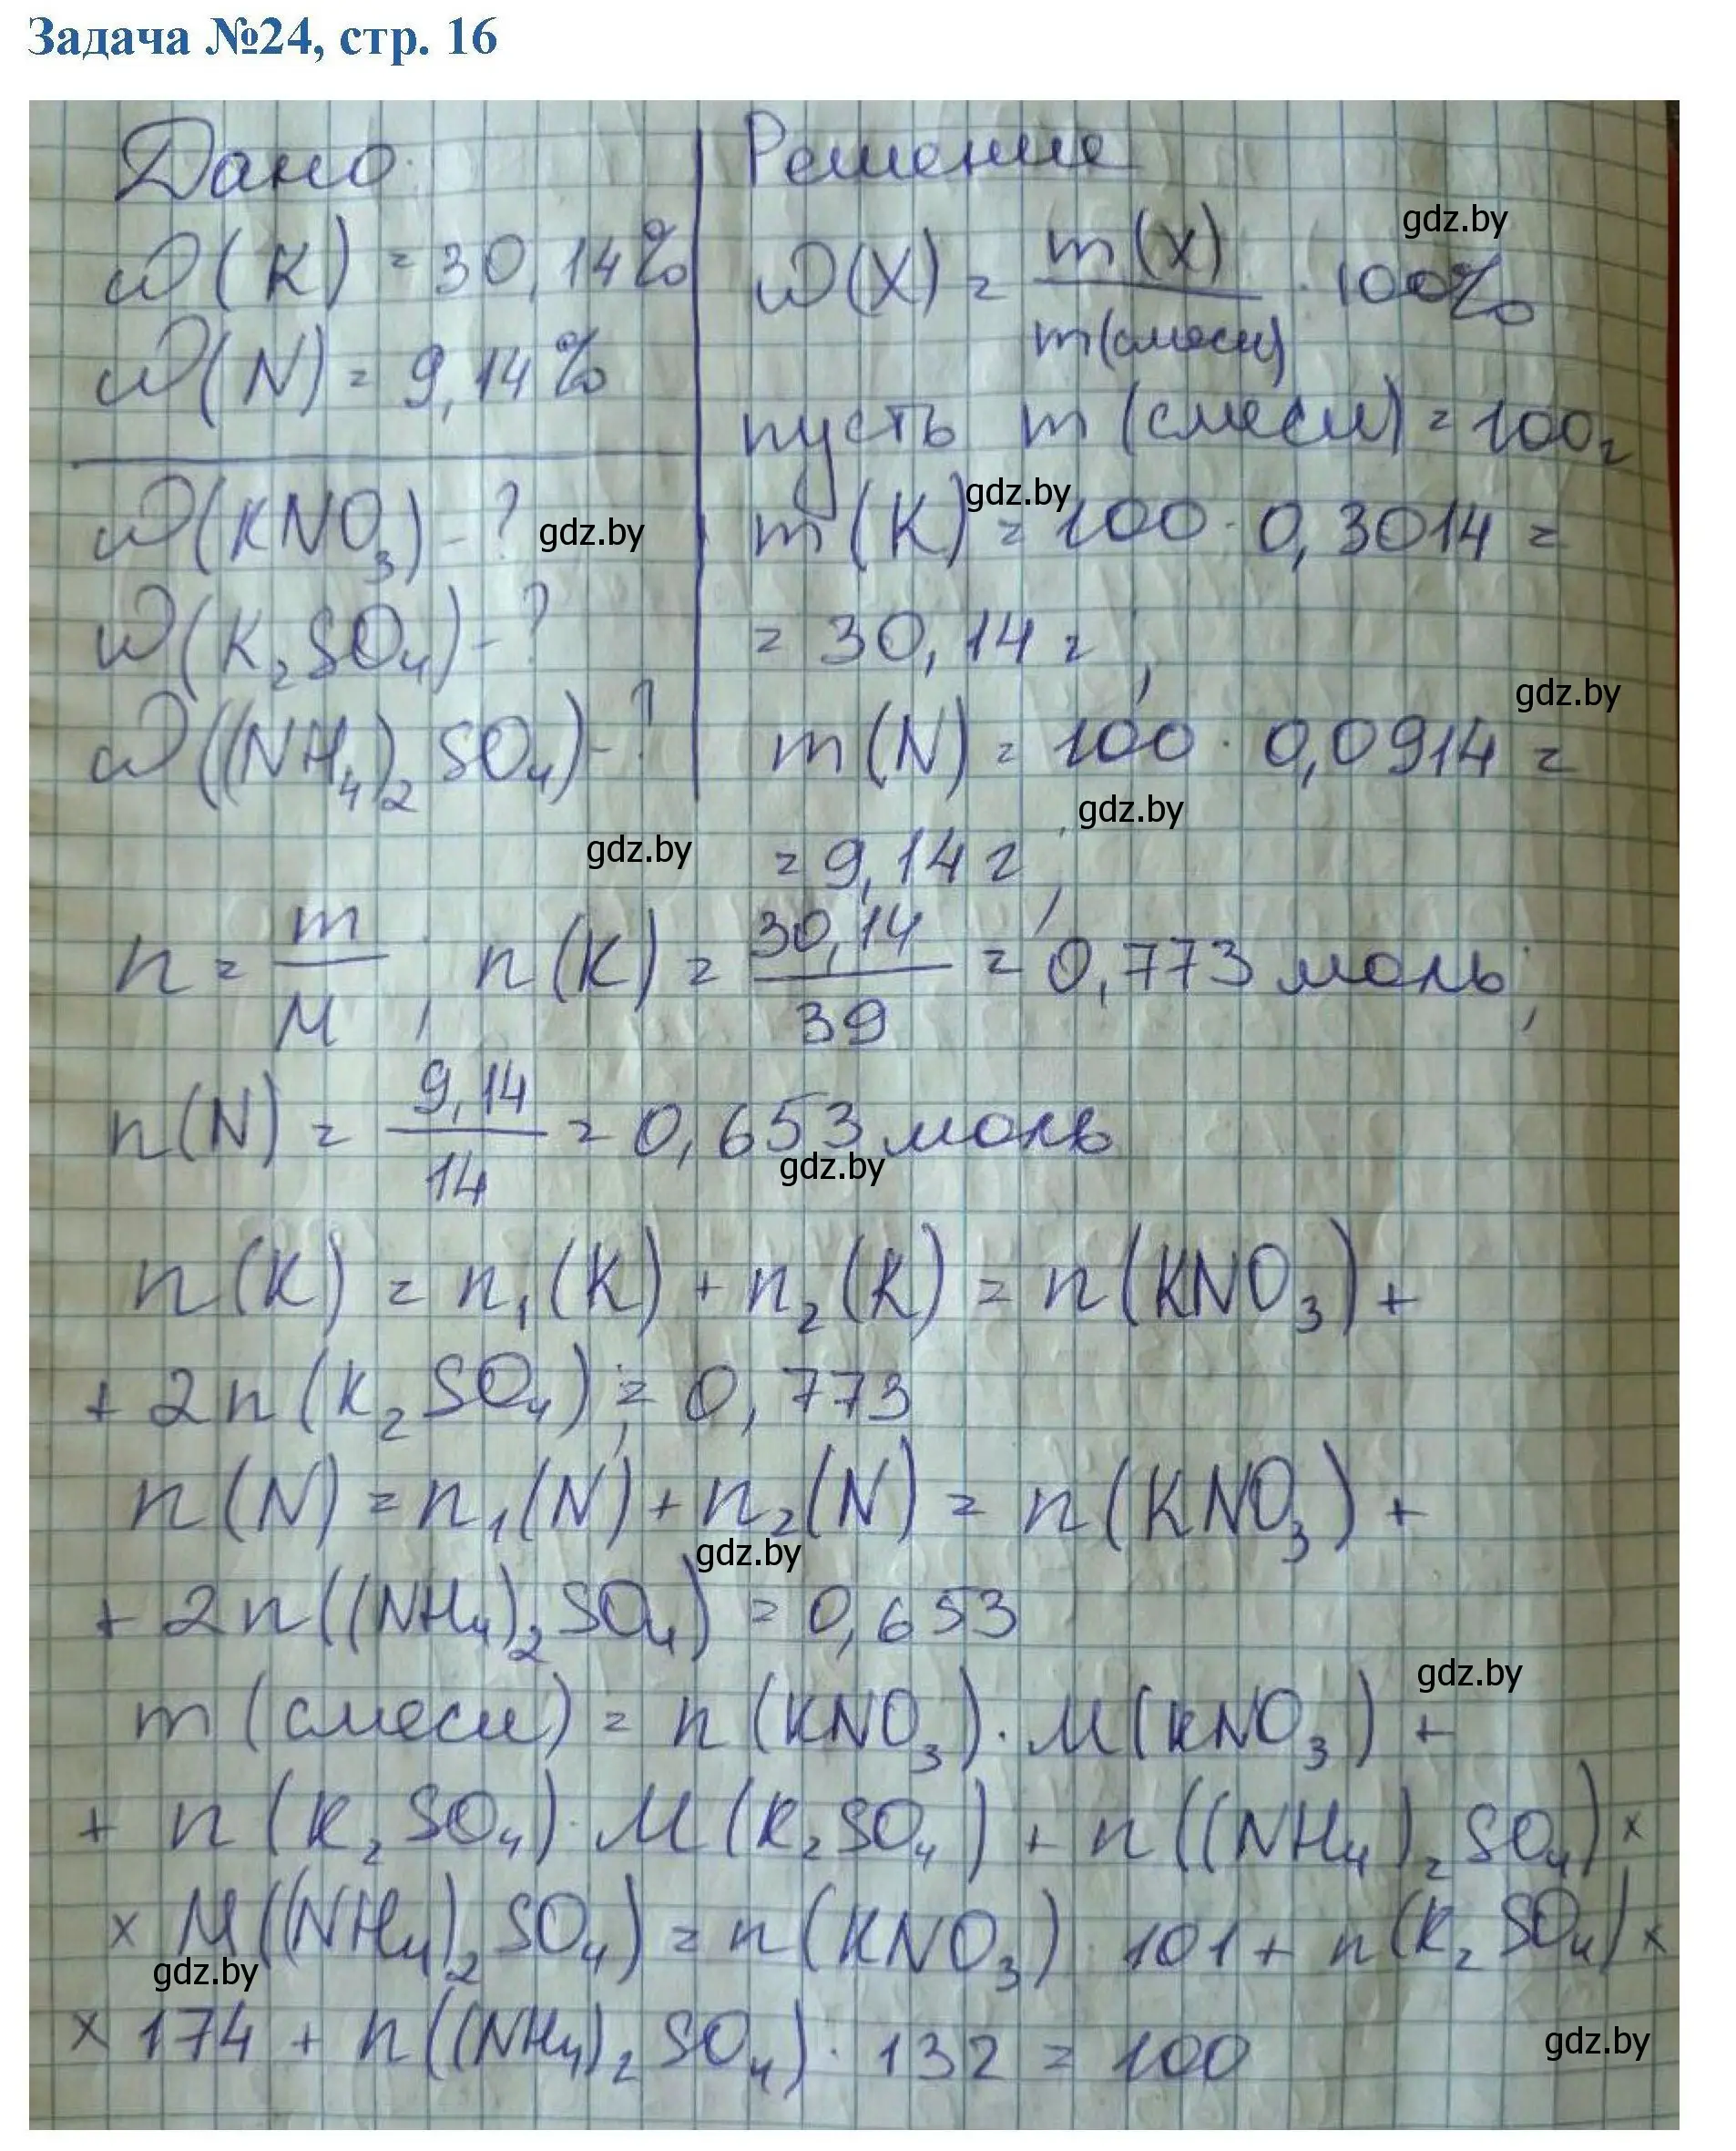 Задача №24, стр. 16
Дано:
ω(K) = 30,14%
ω(N) = 9,14%
ω(KNO₃) - ?
ω(K₂SO₄) - ?
ω((NH₄)₂SO₄) - ?
Решение
ω(X) = m(X)/m(смеси) · 100%
пусть m(смеси) = 100г
m(K) = 100 · 0,3014 =
= 30,14 г;
m(N) = 100 · 0,0914 =
= 9,14 г;
n = m/M; n(K) = 30,14/39 = 0,773 моль;
n(N) = 9,14/14 = 0,653 моль
n(K) = n₁(K) + n₂(K) = n(KNO₃) +
+ 2n(K₂SO₄) = 0,773
n(N) = n₁(N) + n₂(N) = n(KNO₃) +
+ 2n((NH₄)₂SO₄) = 0,653
m(смеси) = n(KNO₃) · M(KNO₃) +
+ n(K₂SO₄) · M(K₂SO₄) + n((NH₄)₂SO₄) ×
× M((NH₄)₂SO₄) = n(KNO₃) · 101 + n(K₂SO₄) ×
× 174 + n((NH₄)₂SO₄) · 132 = 100
gdz.by
gdz.by
gdz.by
gdz.by
gdz.by
gdz.by
gdz.by
gdz.by
gdz.by
gdz.by
gdz.by